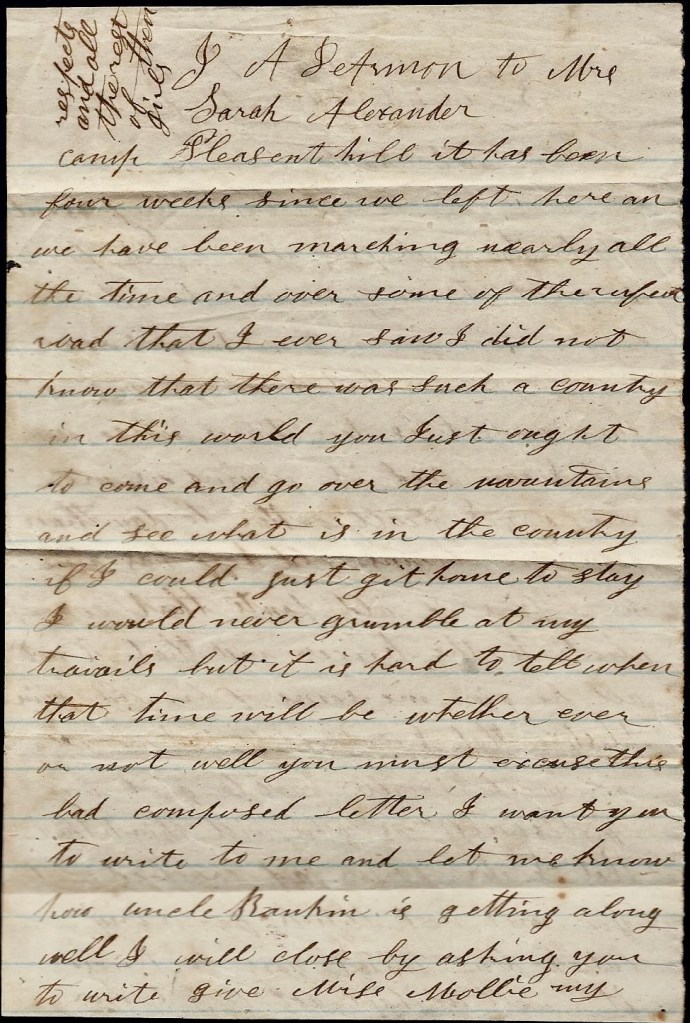 J A SeArmon to Mrs
Sarah Alexander
camp Pleasent hill it has been
four weeks since we left here an
we have been marching nearly all
the time and over some of the rufest
road that I ever saw I did not
know that there was such a country
in this world you Just ought
to come and go over the mountains
and see what is in the country
if I could just git home to stay
I would never grumble at my
travails but it is hard to tell when
that time will be whether ever
or not well you must excuse this
bad composed letter I want you
to write to me and let me know
how uncle Rankin is getting along
well I will close by asking you
to write give Miss Mollie my
respects
and all
the rest
of then
girls